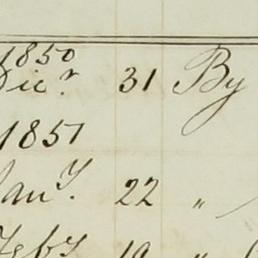 1850
Dec.r 31 By
1851
Jan.y 22 "
Feby 19 "